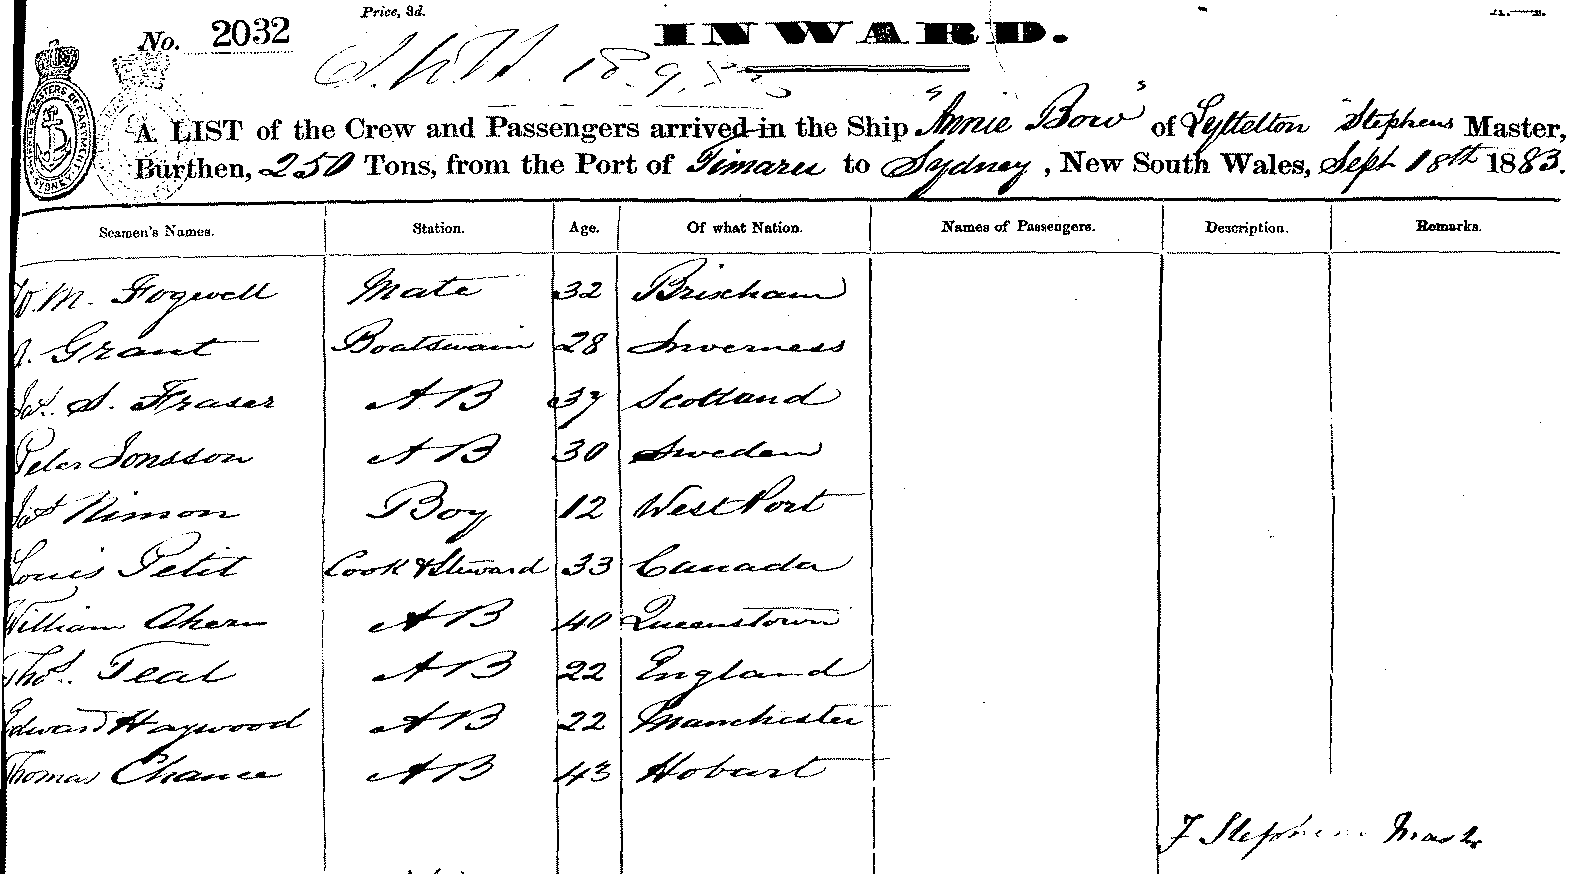 Price, 3d.
No. 2032
INWARD.
18.9.83
A LIST of the Crew and Passengers arrived in the Ship "Annie Bow" of Lyttelton Stephens Master,
Burthen, 250 Tons, from the Port of Timaru to Sydney, New South Wales, Sept 18th 1883.
Seamen's Names. Station. Age. Of what Nation. Names of Passengers. Description. Remarks.
W. M. Fogwell Mate 32 Brixham
Grant Boatswain 28 Inverness
Jas. S. Fraser AB 37 Scotland
Peter Jonsson AB 30 Sweden
Jas Nimon Boy 12 West Port
Louis Petit Cook & Steward 33 Canada
William Ahern AB 40 Queenstown
Thos. Teal AB 22 England
Edward Haywood AB 22 Manchester
Thomas Chance AB 43 Hobart
F Stephens Master